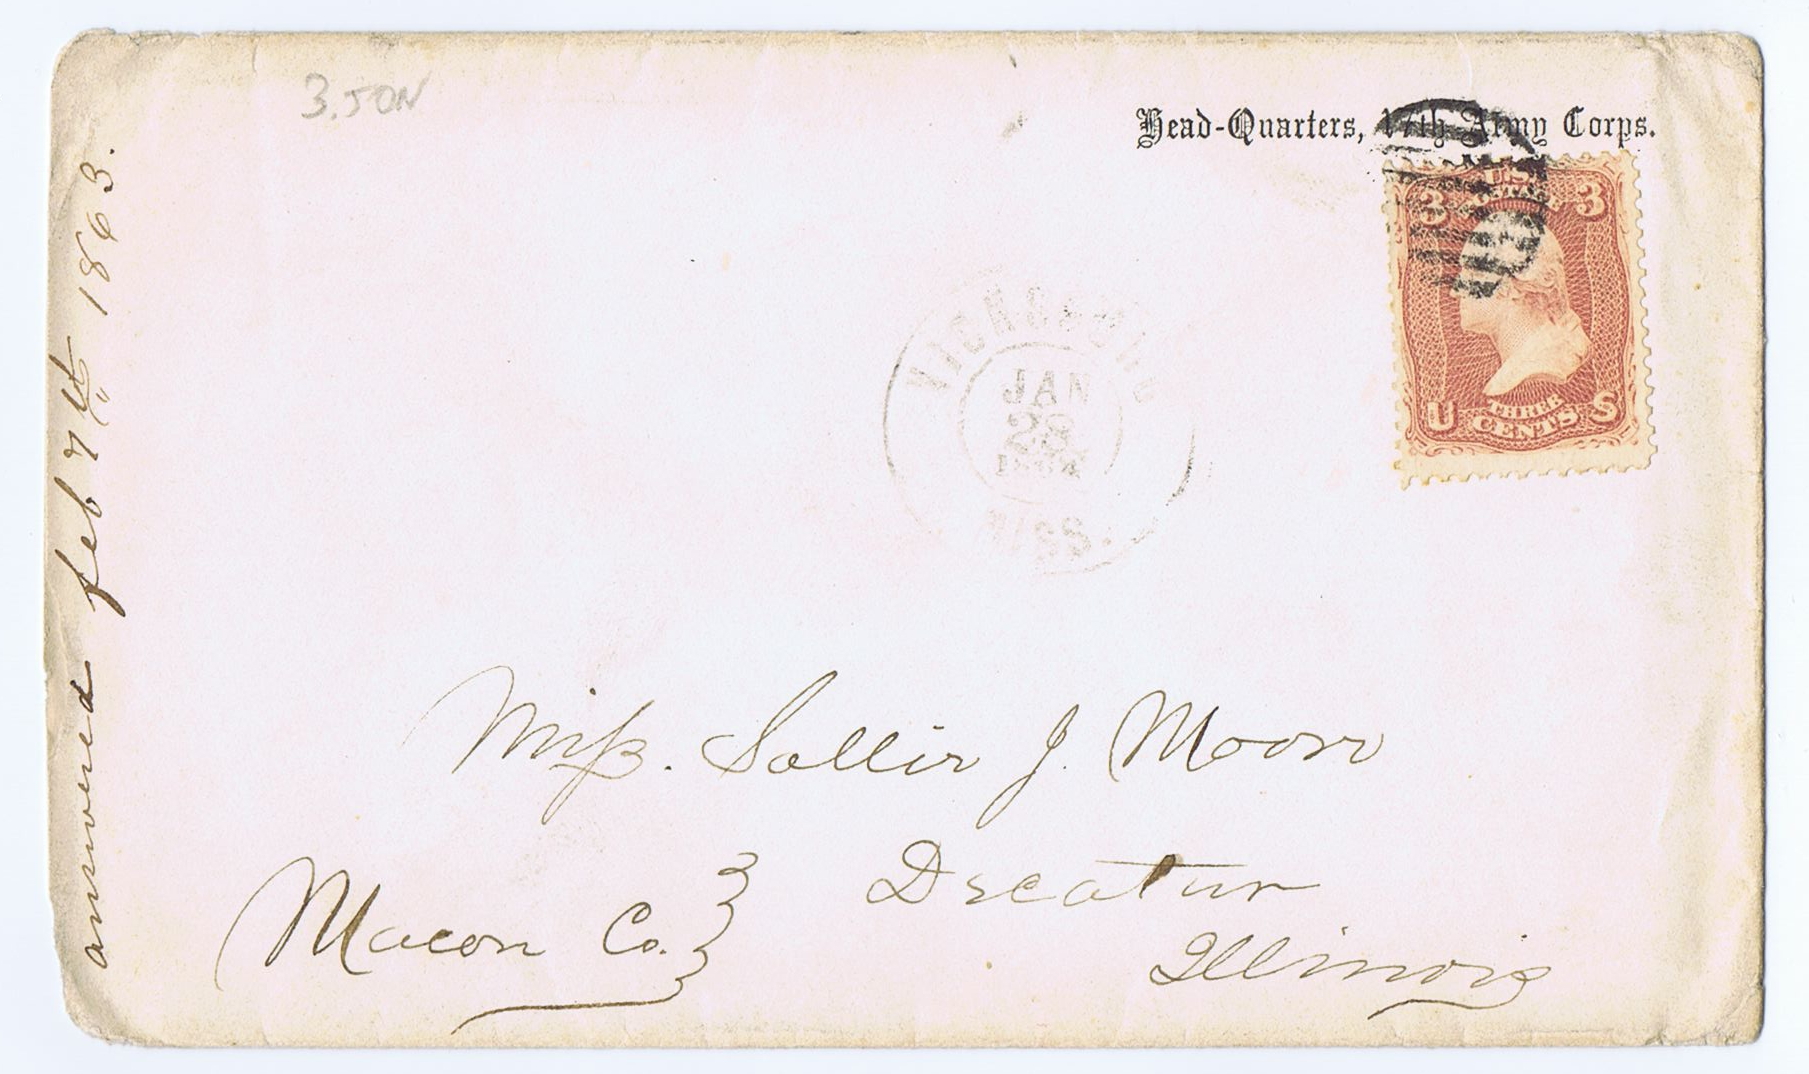 3.JON
Head-Quarters, 17th Army Corps.
U.S.
3 3
U THREE CENTS S
VICKSBURG
JAN
28
1864
MISS.
answered feb 7th 1863.
Miss. Sallie J. Moore
Decatur
Macon Co.
Illinois